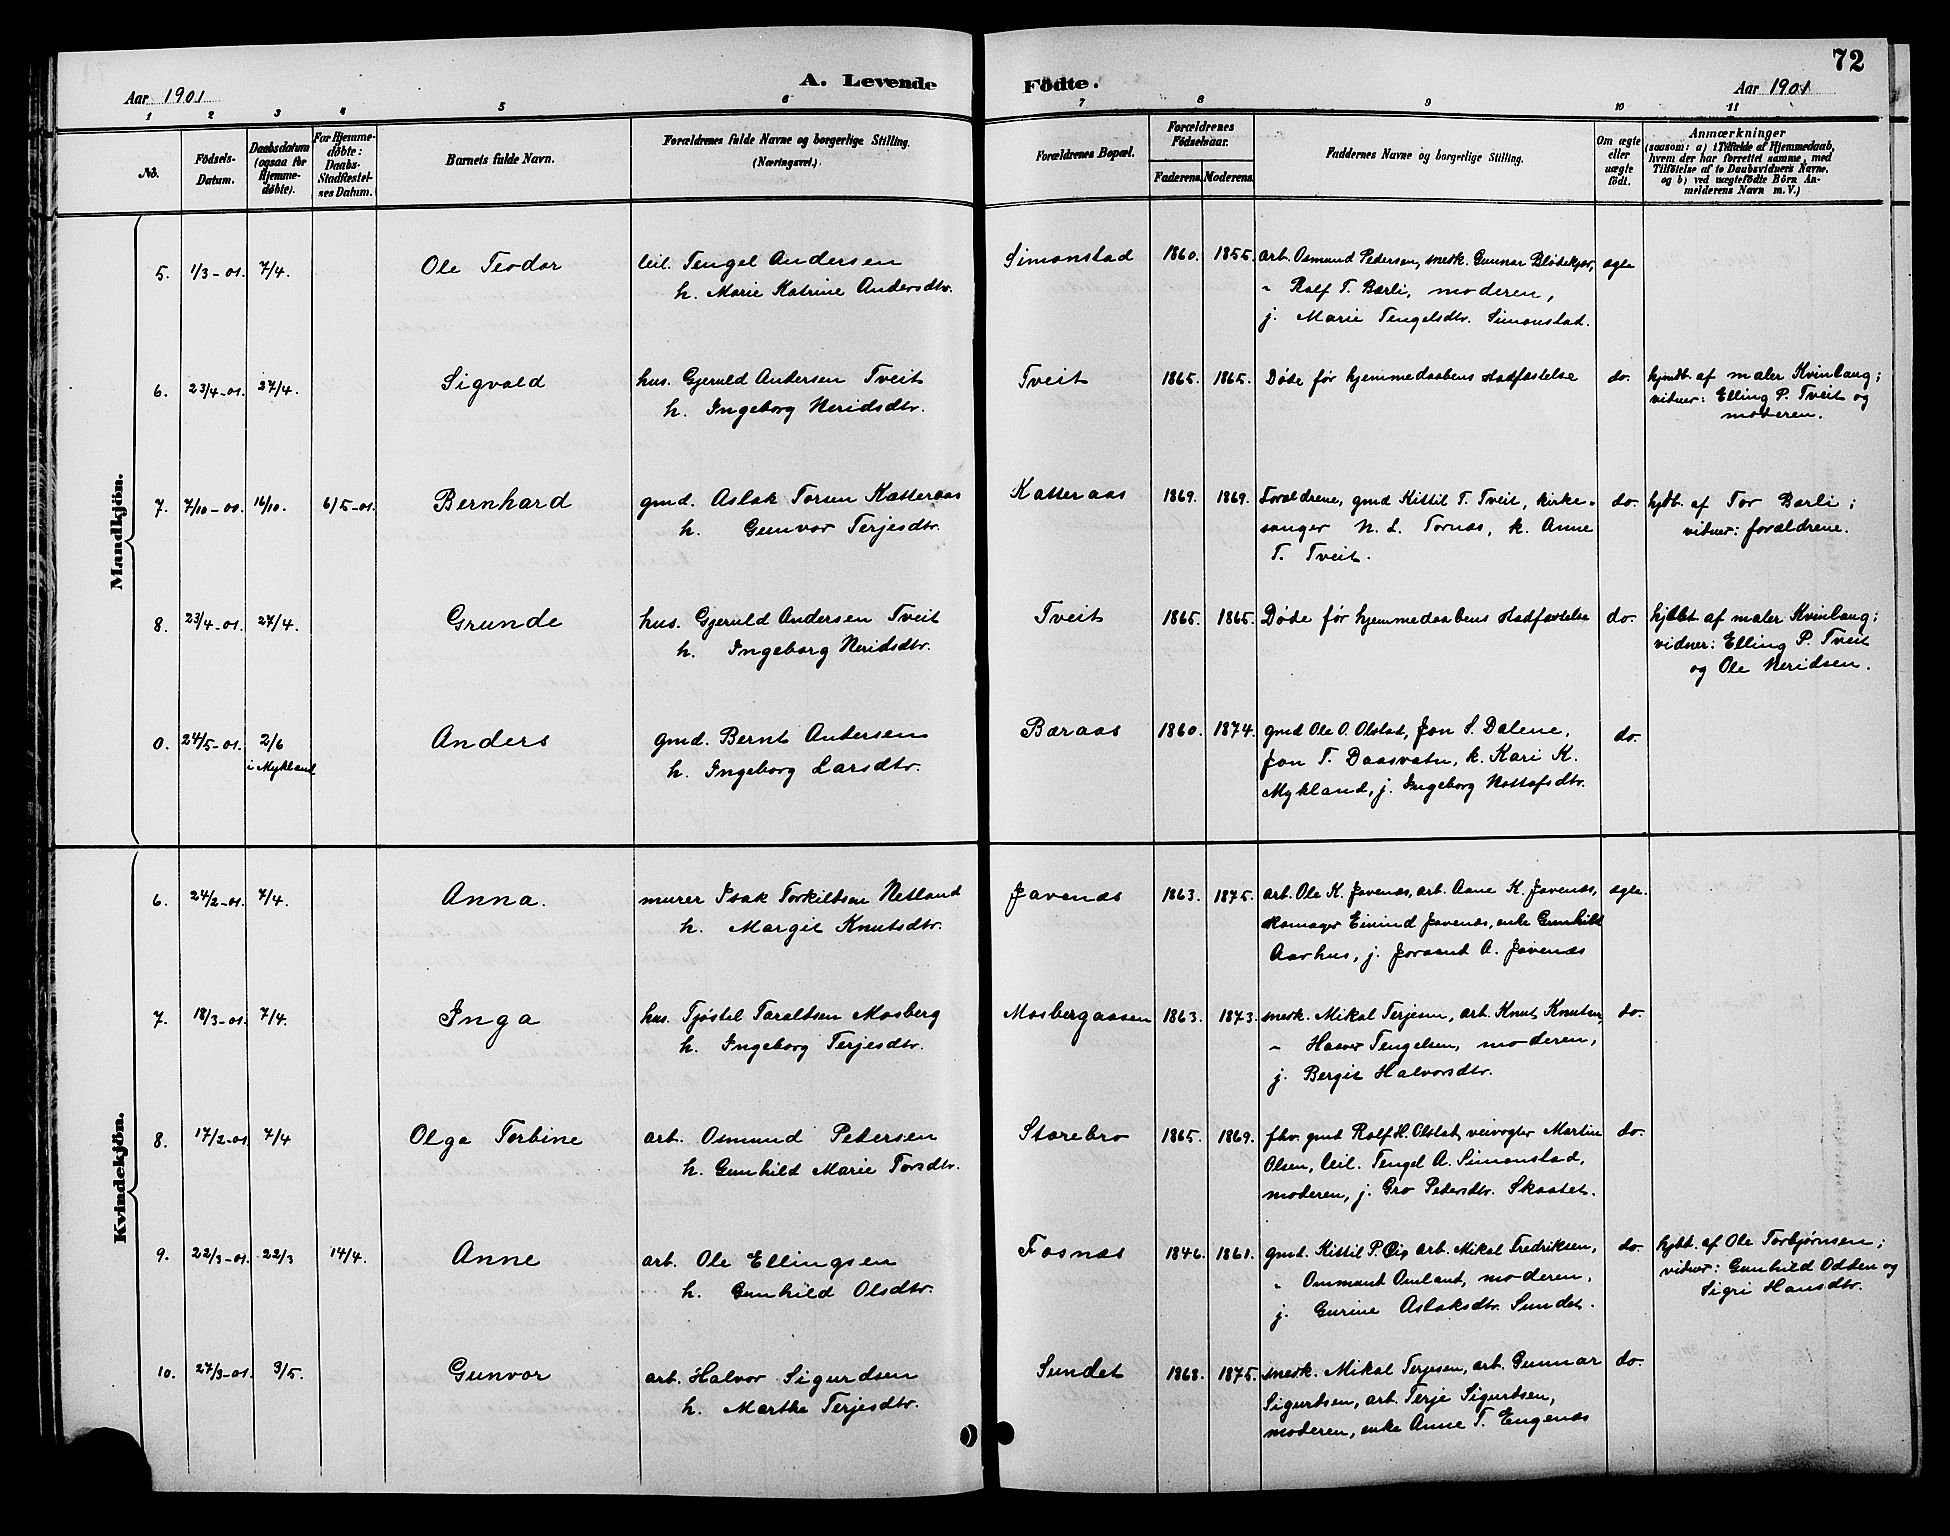 72
A. Levende Födte.
Aar 1901
Aar 1901
1 2 3 4 5 6 7 8 9 10 11
No.
Födsels-Datum.
Daabsdatum (ogsaa for Hjemme-døbte).
For Hjemme-døbte: Daabs-Stadfæstel-ses Datum.
Barnets fulde Navn.
Forældrenes fulde Navne og borgerlige Stilling. (Næringsvei.)
Forældrenes Bopæl.
Forældrenes Fødselsaar.
Faderens. Moderens.
Faddernes Navne og borgerlige Stilling.
Om ægte eller uægte født.
Anmærkninger
(saasom: a) i Tilfælde af Hjemmedaab,
hvem der har forrettet samme, med
Tilføielse af to Daabsvidners Navne,
og b) ved uægtefødte Börn An-
melderens Navn m. V.)
Mandkjön.
5. 1/3-01. 7/4. Ole Teodor leil. Tengel Andersen Simonstad 1860. 1855. arb. Osmund Pedersen, snedk. Gunnar Blødekjær, ægte
h. Marie Katrine Andersdtr. " Ralf T. Bærli, moderen,
j. Marie Tengelsdtr. Simonstad.
6. 23/4-01. 27/4. Sigvald hus. Gjeruld Andersen Tveit Tveit 1865. 1865. Døde før hjemmedaabens stadfæstelse do. hjmdb. af maler Kvinlaug;
h. Ingeborg Neridsdtr. vidner: Elling P. Tveit og
moderen.
7. 7/10-00. 16/10. 6/5-01. Bernhard gmd. Aslak Torsen Katteraas Katteraas 1869. 1869. Forældrene, gmd Kittil T. Tveit, kirke- do. hjdb. af Tor Bærli;
h. Gunvor Terjesdtr. sanger N. L. Tornæs, k. Anne vidner: forældrene.
T. Tveit.
8. 23/4-01. 27/4. Grunde hus. Gjeruld Andersen Tveit Tveit 1865. 1865. Døde før hjemmedaabens stadfæstelse do. hjdbt af maler Kvinlaug;
h. Ingeborg Neridsdtr. vidner: Elling P. Tveit
og Ole Neridsen.
0. 24/5-01. 2/6 Anders gmd. Bernt Andersen Baraas 1860. 1874. gmd Ole O. Olstad, Jon S. Dalene, do.
i Mykland h. Ingeborg Larsdtr. Jon T. Daasvatn, k. Kari K.
Mykland, j. Ingeborg Nottofsdtr.
Kvindekjön.
6. 24/2-01. 7/4. Anna. murer Isak Torkildsen Netland Jovenæs 1863. 1875. arb. Ole K. Jovenæs, arb. Aane K. Jovenæs, ægte.
h. Margit Knutsdtr. skomager Eivind Jovenæs, enke Gunhild
Aarhus, j. Joraand A. Jovenæs
7. 18/3-01. 7/4. Inga hus. Tjøstel Taraldsen Mosberg Mosbergaasen 1863. 1873. snedk. Mikal Terjesen, arb. Knut Knutsen, do.
h. Ingeborg Terjesdtr. " Halvor Tengelsen, moderen,
j. Bergit Halvorsdtr.
8. 17/2-01 7/4 Olga Torbine arb. Osmund Pedersen Storebro 1865. 1869. fhv. gmd Ralf H. Olstad, veivogter Martin do.
h. Gunhild Marie Torsdtr. Olsen, leil. Tengel A. Simonstad,
moderen, j. Gro Pedersdtr. Skaatet.
9. 22/3-01. 22/3 14/4. Anne arb. Ole Ellingsen Fosnæs 1846. 1861. gmd. Kittil P. Øi, arb. Mikal Fredriksen, do. hjdb. af Ole Torbjørnsen;
h. Gunhild Olsdtr. " Ommund Omland, moderen, vidner: Gunhild Odden og
j. Gurine Aslaksdtr. Sundet. Sigri Hansdtr.
10. 27/3-01. 9/5. Gunvor arb. Halvor Sigurdsen Sundet 1868. 1875. snedk. Mikal Terjesen, arb. Gunnar do.
h. Marthe Terjesdtr. Sigurdsen, arb. Terje Sigurdsen,
moderen, enke Anne T. Engenæs